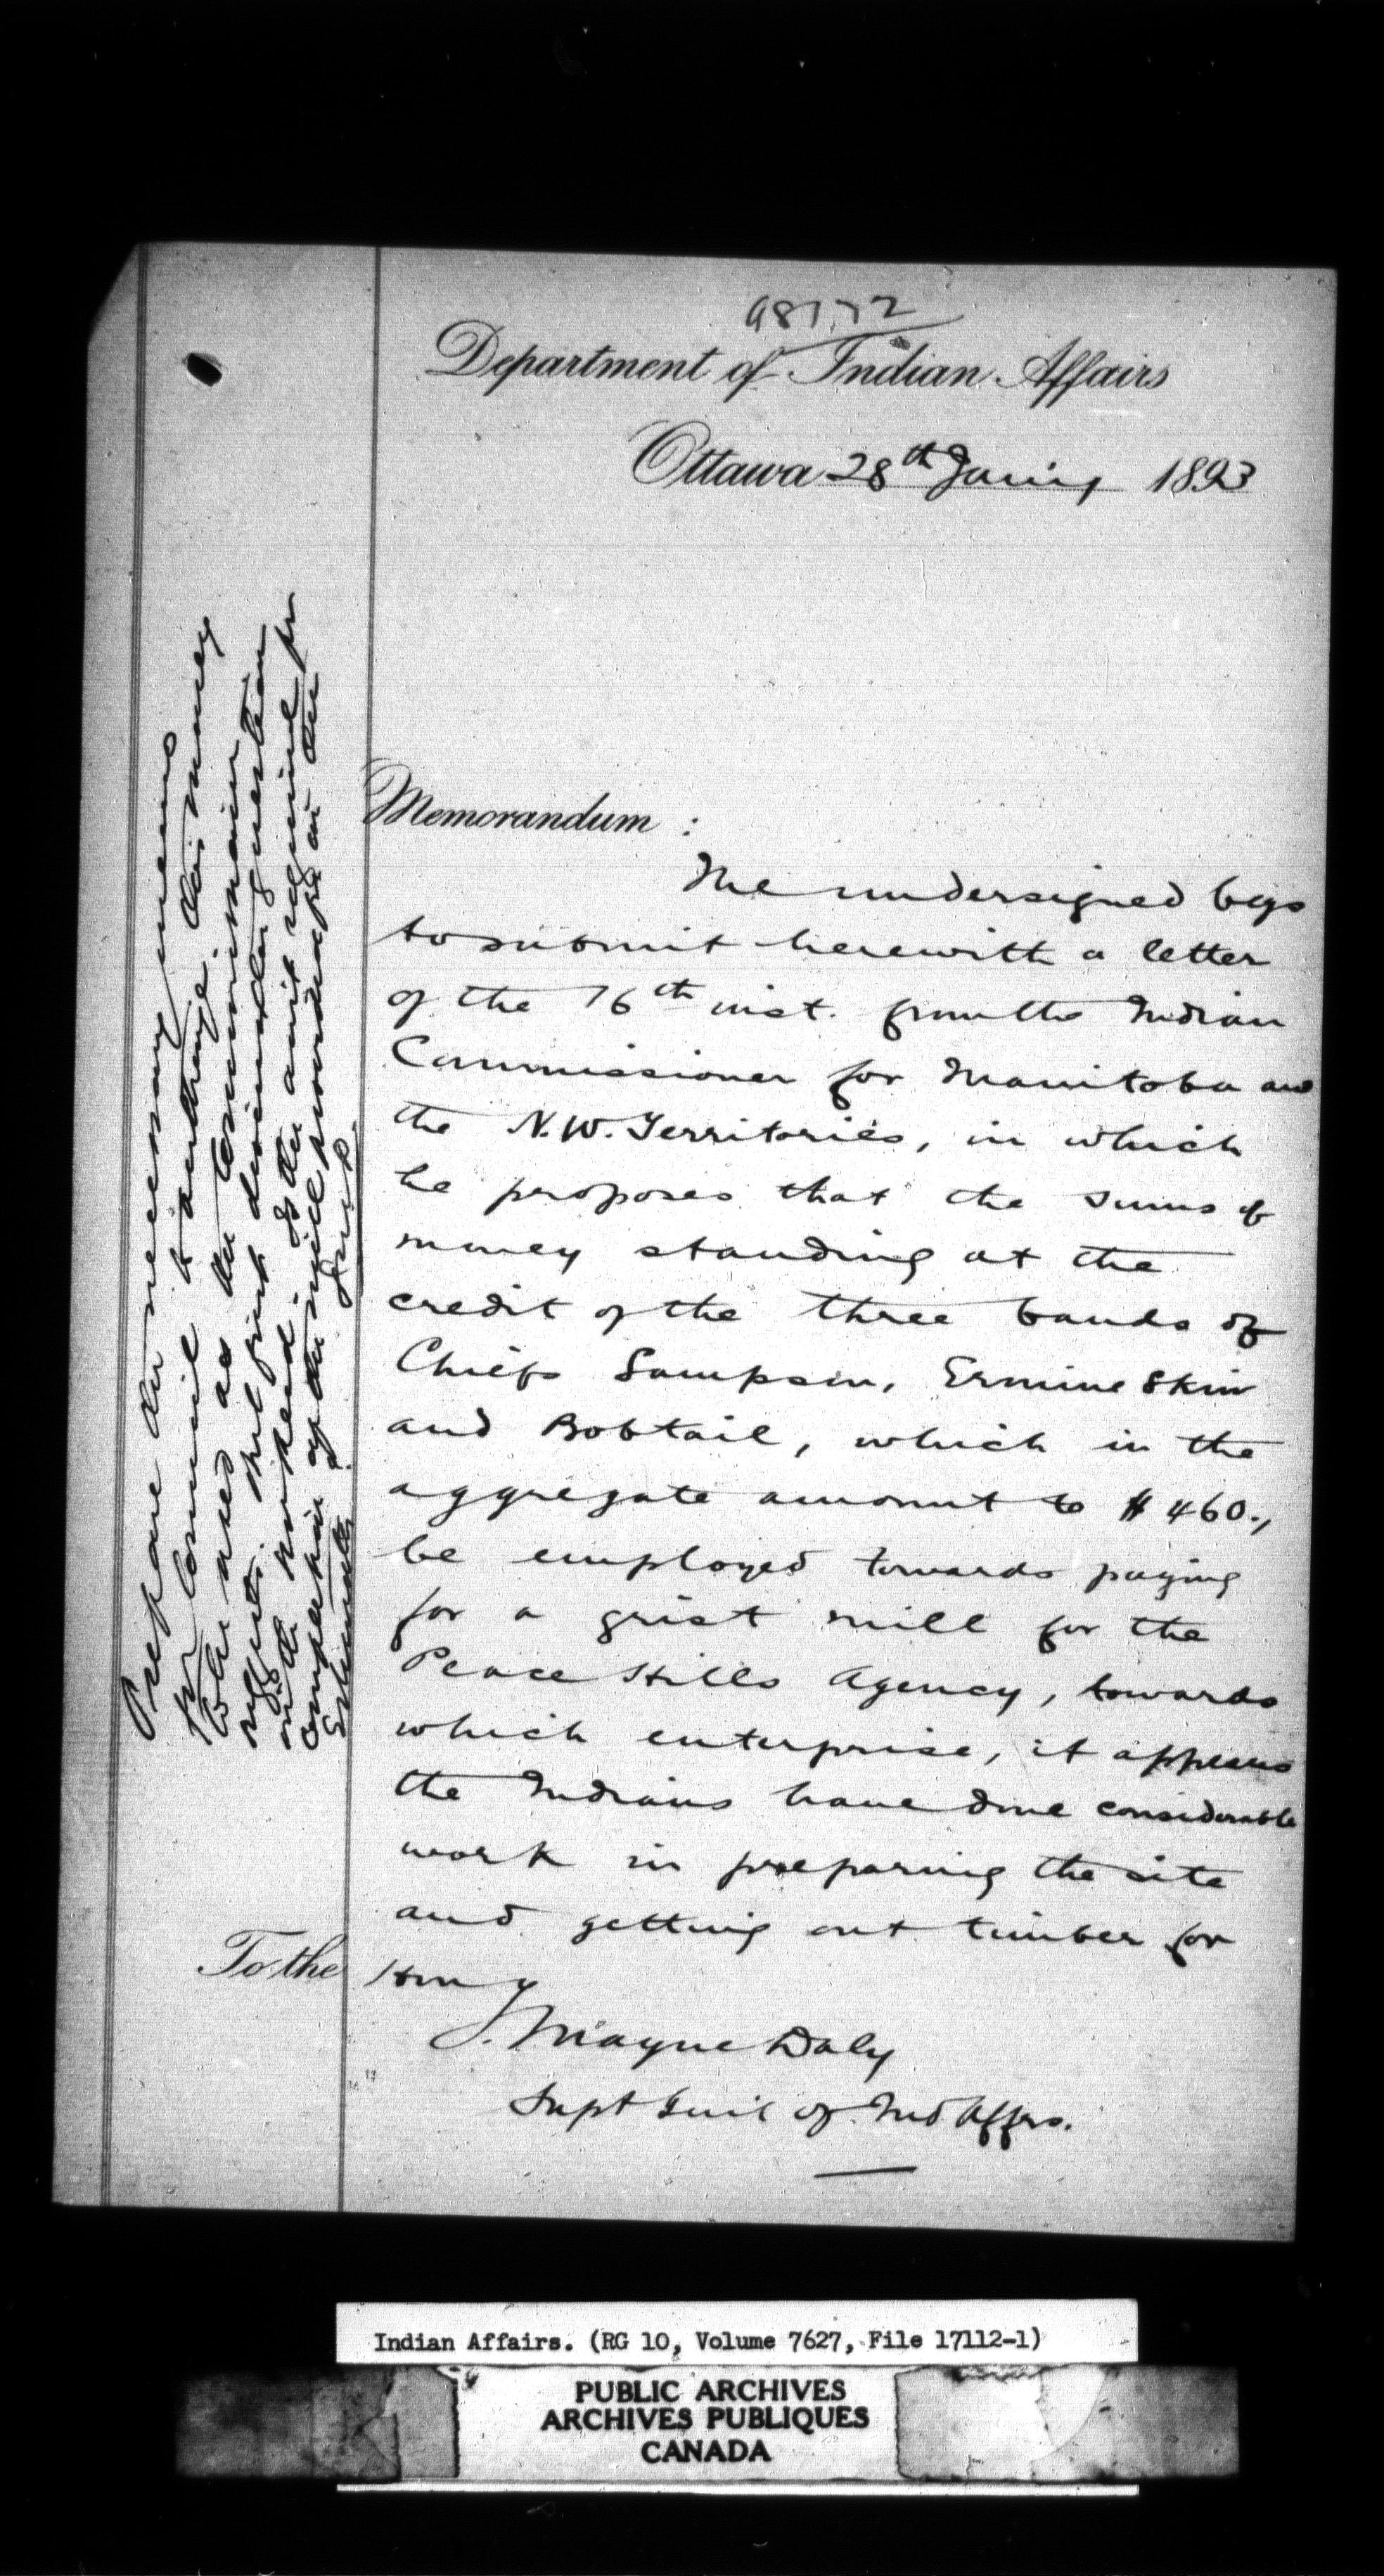 98172
Department of Indian Affairs
Ottawa 28th Jany 1893
Memorandum :
The undersigned begs
to submit herewith a letter
of the 16th inst. from the Indian
Commissioner for Manitoba and
the N.W. Territories, in which
he proposes that the sums of
money standing at the
credit of the three bands of
Chiefs Sampson, Ermine Skin
and Bobtail, which in the
aggregate amount to $460.,
be employed towards paying
for a grist mill for the
Peace Hills Agency, towards
which enterprise, it appears
the Indians have done considerable
work in preparing the site
and getting out timber for
To the Hon
T. Mayne Daly
Supt Genl of Ind Affrs.
Prepare the necessary memo
for Council to authorize this money
to be used as the Commissioner
suggests. the grist
in the the amt required for
completion of the mill provided for in the
Estimates.
Indian Affairs. (RG 10, Volume 7627, File 17112-1)
PUBLIC ARCHIVES
ARCHIVES PUBLIQUES
CANADA